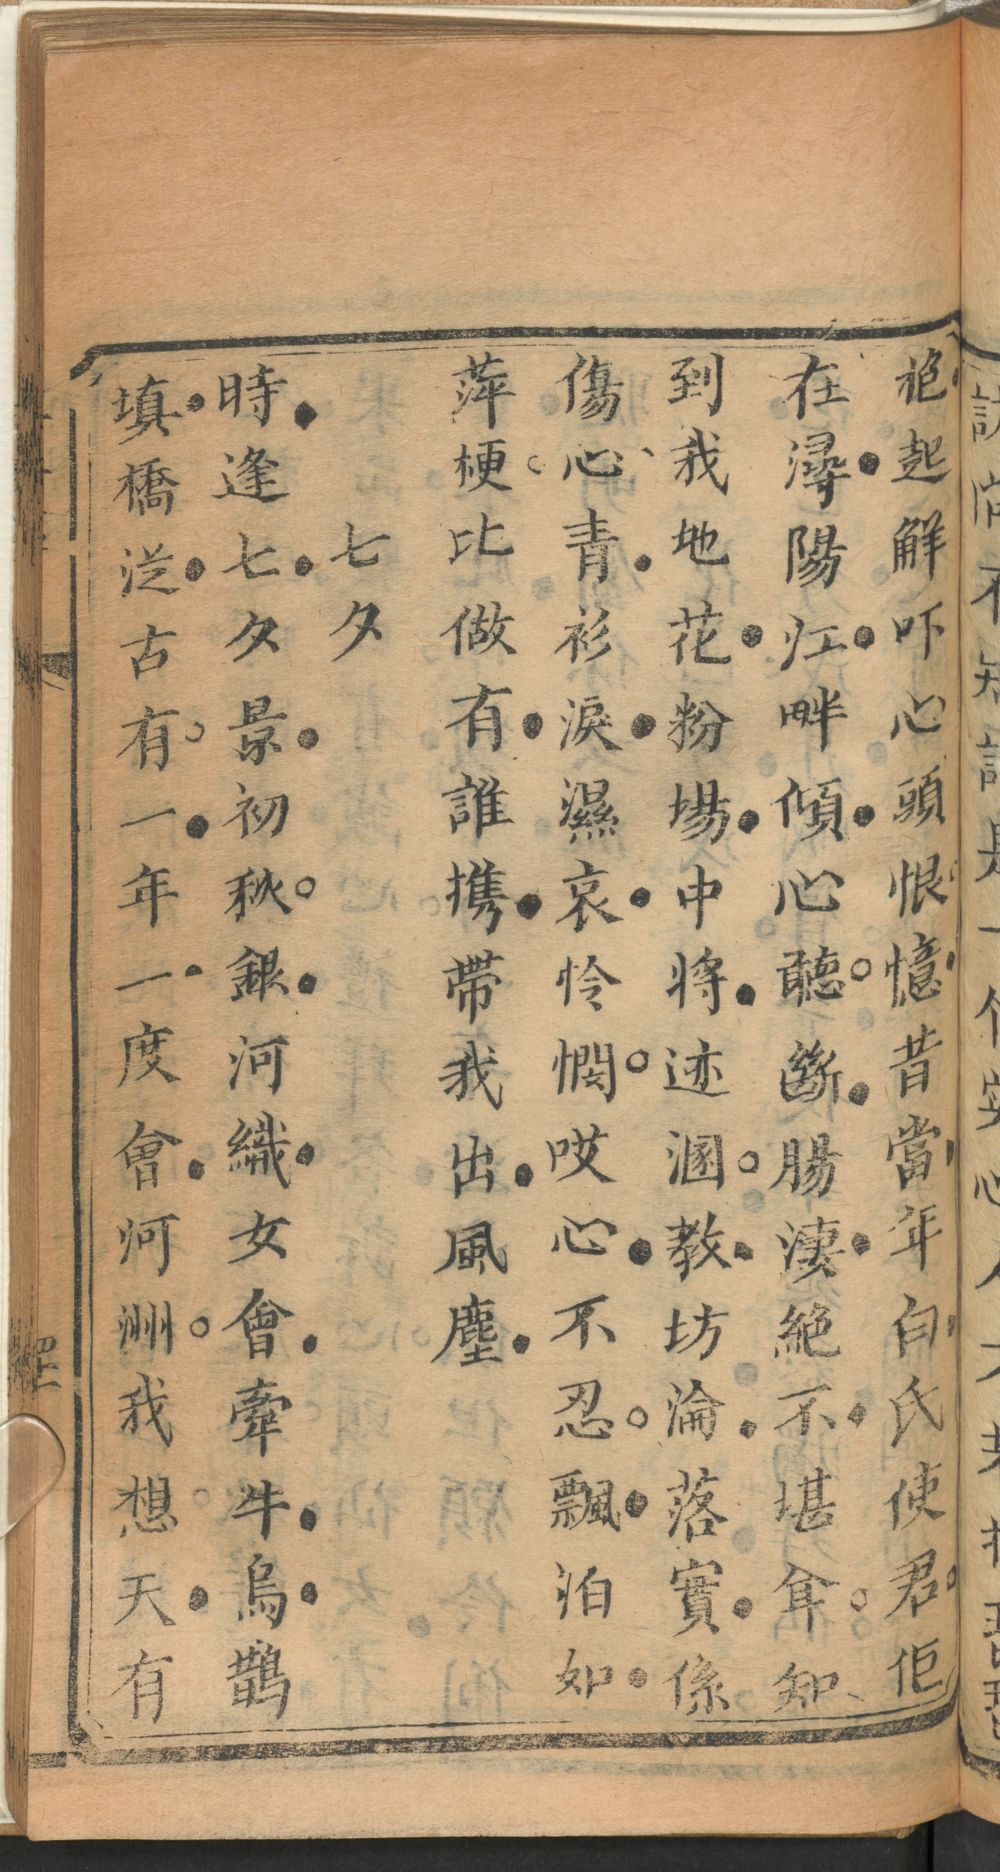 絶起鮮吓心頭恨憶昔當年白氏使君佢
在潯陽江畔傾心聽斷腸淒絕不堪耷知
到我地花粉場中將迹溷教坊淪落實係
傷心青衫淚濕哀怜憫哎心不忍飄泊如
萍梗比做有誰携帶我出風塵
七夕
時逢七夕景初秋銀河織女會牽牛烏鵲
填橋從古有一年一度會河洲我想天有